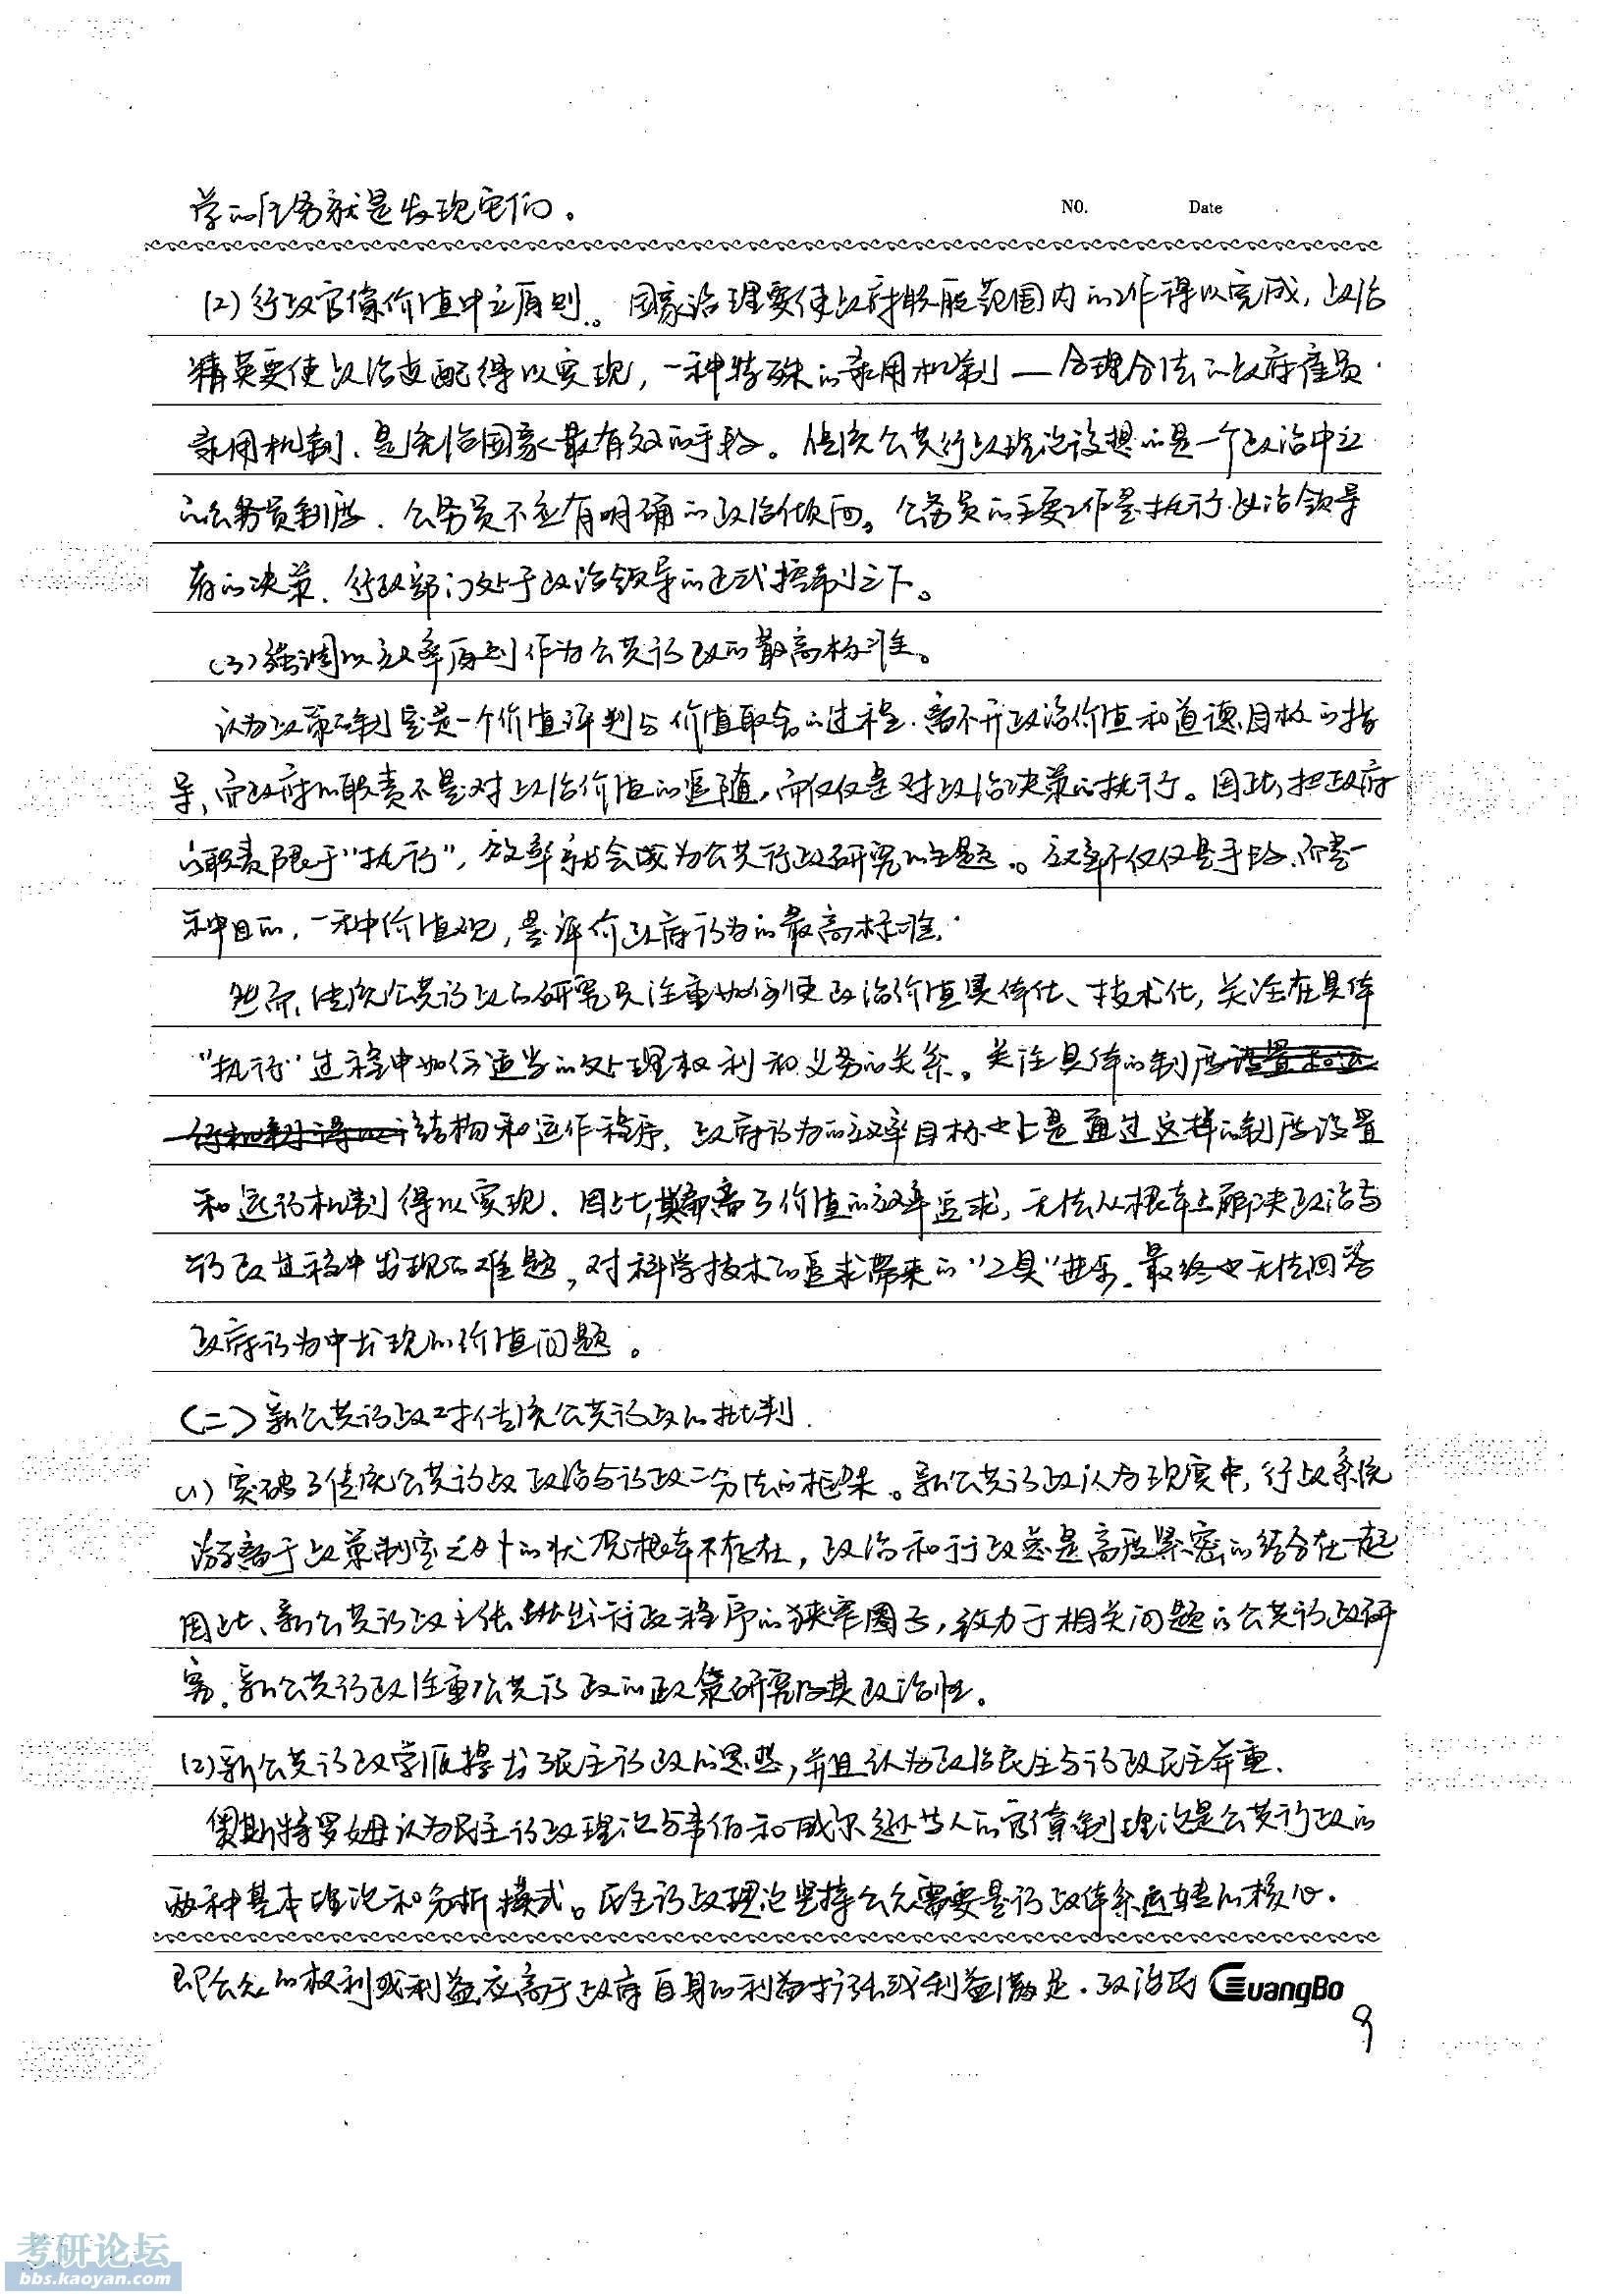 学的任务就是发现它们。
NO. Date
(2)行政官僚价值中立原则。国家治理要使政府职能范围内的工作得以完成,政治
精英要使政治支配得以实现,一种特殊的录用机制—合理合法的政府雇员
录用机制、是统治国家最有效的手段。传统公共行政理论设想的是一个政治中立
的公务员制度、公务员不应有明确的政治倾向。公务员的主要工作是执行政治领导
者的决策、行政部门处于政治领导的正式控制之下。
(3)强调以效率原则作为公共行政的最高标准。
认为政策制定是一个价值评判与价值取舍的过程、离不开政治价值和道德目标的指
导,而政府的职责不是对政治价值的追随,而仅仅是对政治决策的执行。因此,把政府
的职责限于“执行”,效率就会成为公共行政研究的主题。效率不仅仅是手段、而是一
种目的,一种价值观,是评价政府行为的最高标准.
然而,传统公共行政的研究只注重如何使政治价值具体化、技术化,关注在具体
“执行”过程中如何适当的处理权利和义务的关系。关注具体的制度设置和运
行机制得以结构和运作程序、政府行为的效率目标也是通过这样的制度设置
和运行机制得以实现.因此,其都离了价值的效率追求,无法从根本上解决政治与
行政过程中出现的难题,对科学技术的追求带来的“工具”进步.最终也无法回答
政府行为中出现的价值问题。
(二)新公共行政对传统公共行政的批判.
(1)突破了传统公共行政政治与行政二分法的框架。新公共行政认为现实中,行政系统
游离于政策制定之外的状况根本不存在,政治和行政总是高度紧密的结合在一起
因此、新公共行政主张跳出行政程序的狭窄圈子,致力于相关问题的公共行政研
究.新公共行政注重公共行政的政策研究及其政治性。
(2)新公共行政学派提出了民主行政的思想,并且认为政治民主与行政民主并重.
奥斯特罗姆认为民主行政理论与韦伯和威尔逊等人的官僚制理论是公共行政的
两种基本理论和分析模式。民主行政理论坚持公众需要是行政体系运转的核心.
即公众的权利或利益应高于政府自身的利益扩张或利益满足.政治民
GuangBo
9
考研论坛
bbs.kaoyan.com